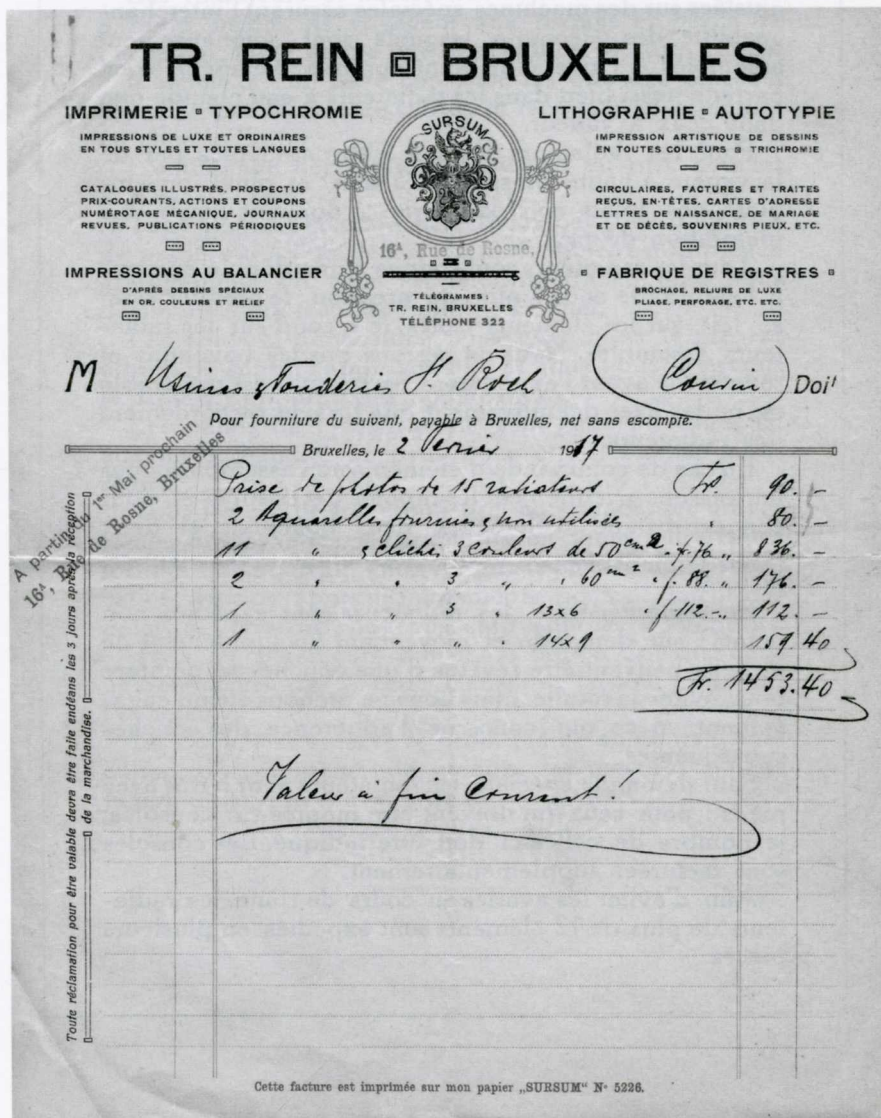 TR. REIN BRUXELLES
IMPRIMERIE TYPOCHROMIE
IMPRESSIONS DE LUXE ET ORDINAIRES
EN TOUS STYLES ET TOUTES LANGUES
CATALOGUES ILLUSTRÉS, PROSPECTUS
PRIX-COURANTS, ACTIONS ET COUPONS
NUMÉROTAGE MÉCANIQUE, JOURNAUX
REVUES, PUBLICATIONS PÉRIODIQUES
IMPRESSIONS AU BALANCIER
D'APRÈS DESSINS SPÉCIAUX
EN OR, COULEURS ET RELIEF
SURSUM
16A, Rue de Rosne,
TÉLÉGRAMMES :
TR. REIN, BRUXELLES
TÉLÉPHONE 322
LITHOGRAPHIE AUTOTYPIE
IMPRESSION ARTISTIQUE DE DESSINS
EN TOUTES COULEURS TRICHROMIE
CIRCULAIRES, FACTURES ET TRAITES
REÇUS, EN-TÊTES, CARTES D'ADRESSE
LETTRES DE NAISSANCE, DE MARIAGE
ET DE DÉCÈS, SOUVENIRS PIEUX, ETC.
FABRIQUE DE REGISTRES
BROCHAGE, RELIURE DE LUXE
PLIAGE, PERFORAGE, ETC. ETC.
M Usines & Fonderies St. Roch (Couvin) Doit
Pour fourniture du suivant, payable à Bruxelles, net sans escompte.
Bruxelles, le 2 1917
A partir du 1er Mai prochain
16A, Rue de Rosne, Bruxelles
Prise de photos de 15 radiateurs Fr. 90.-
2 Aquarelles fournies & non utilisées " 80.-
11 " & clichés 3 couleurs de 50 cm2 à f. 76 " 836.-
2 " " 3 " " 60 cm2 " f. 88. " 176.-
1 " " 3 " 13x6 " f 112.- " 112.-
1 " " " " 14x9 159.40
Fr. 1453.40
Valeur à fin courant!
Toute réclamation pour être valable devra être faite endéans les 3 jours après la réception
de la marchandise.
Cette facture est imprimée sur mon papier „SURSUM" No 5226.